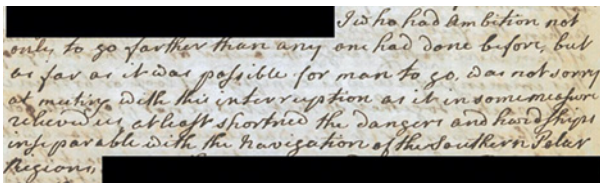 I who had Ambition not
only to go farther than any one had done before, but
as far as it was possible for man to go, was not sorry
at meeting with this interruption as it in some measure
relieved us at least shortned the dangers and hardships
inseparable with the Navigation of the Southern Polar
Regions.